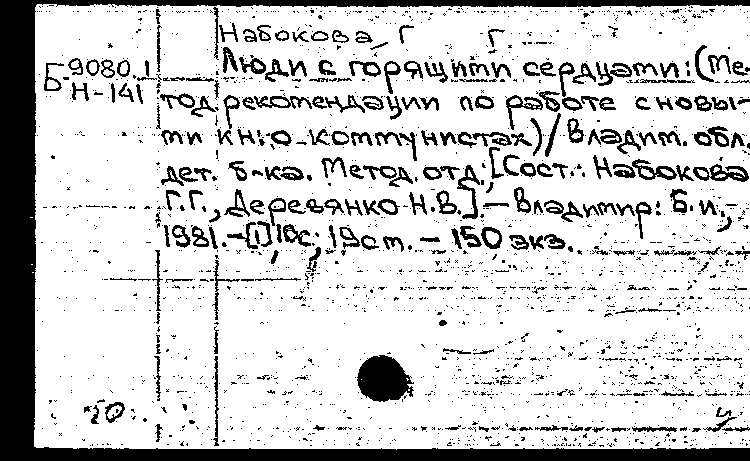 Набокова, Г Г.
Б 9080.1
Н-141
Люди с горящими сердцами: (Ме-
тод. рекомендации по работе с новы-
ми кн. о коммунистах) / Владим. обл.
дет. б-ка. Метод. отд.; [Сост.: Набокова
Г.Г., Деревянко Н.В.] – Владимир: Б. и.,
1981. – [1] 10с; 19см. – 150 экз.